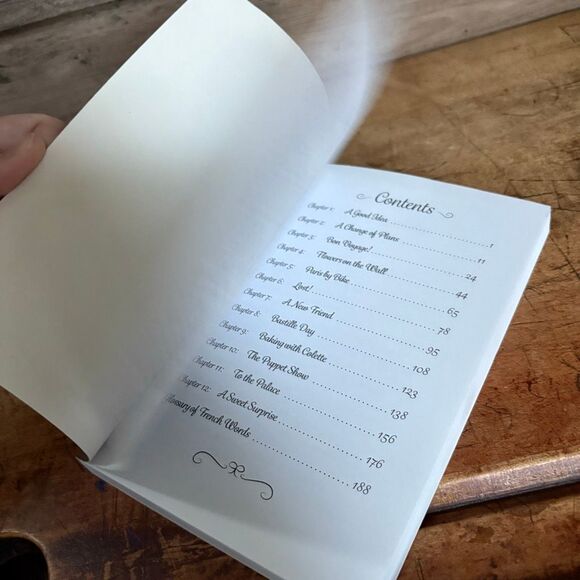 Contents
Chapter 1: A Good Idea 1
Chapter 2: A Change of Plans 11
Chapter 3: Bon Voyage! 24
Chapter 4: Flowers on the Wall 44
Chapter 5: Paris by Bike 65
Chapter 6: Lost! 78
Chapter 7: A New Friend 95
Chapter 8: Bastille Day 108
Chapter 9: Baking with Colette 123
Chapter 10: The Puppet Show 138
Chapter 11: To the Palace 156
Chapter 12: A Sweet Surprise 176
Glossary of French Words 188